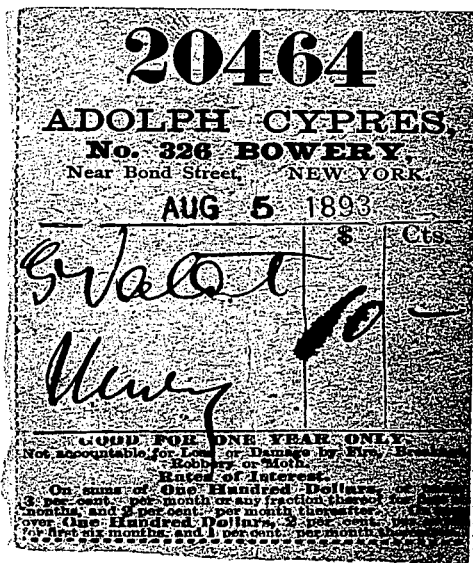 20464
ADOLPH CYPRES,
No. 326 BOWERY,
Near Bond Street, NEW YORK.
AUG 5 1893
$ Cts.
10 —
Henry
GOOD FOR ONE YEAR ONLY.
Not accountable for Loss or Damage by Fire, Breakage
Robbery or Moth.
Rates of Interest.
On sums of One Hundred Dollars,
3 per cent. per month or any fraction thereof for
months, and 2 per cent. per month thereafter.
over One Hundred Dollars, 2 per cent. per
for first six months, and 1 per cent. per month